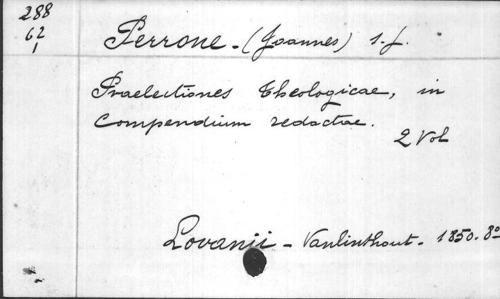 288
62
1
Perrone - (Joannes) s.j.
Praelectiones theologicae, in
Compendium redactae.
2 Vol
Lovanii - Vanlinthout - 1850. 8º